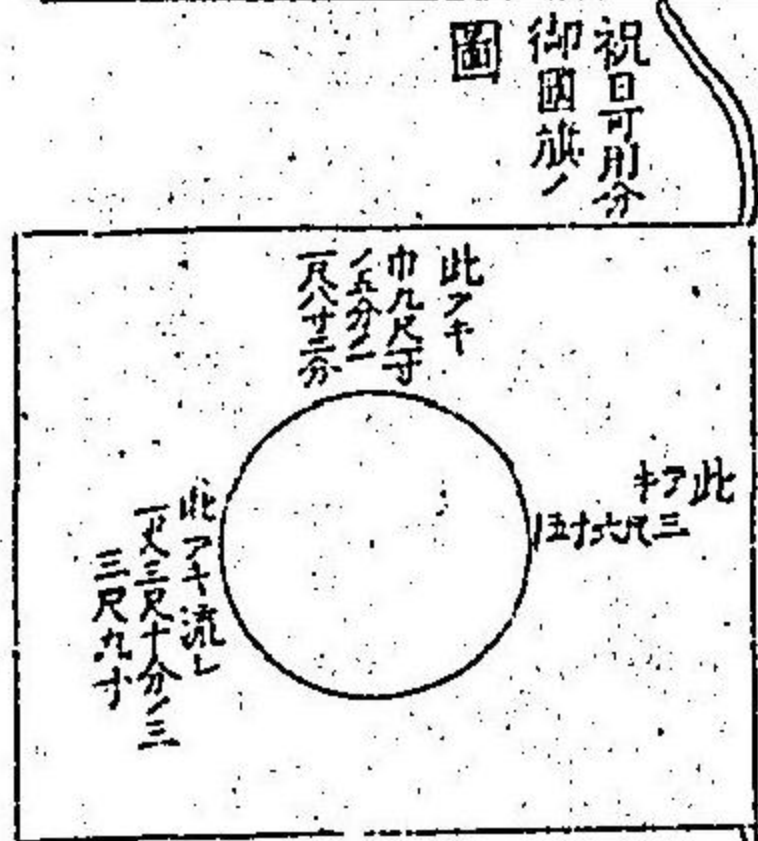 祝日可用分
御國旗ノ
圖
此アキ
巾九尺一寸
ノ五分ノ一
一尺八寸二分
此アキ
三尺六寸五
此アキ流レ
一丈三尺十分ノ三
三尺九寸